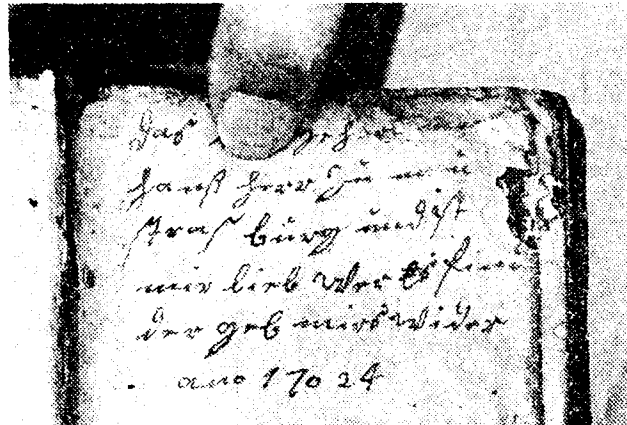 Das
hanß herr zu
stras burg und ist
mir lieb wer es fin
der geb mirs wider
ano 17024